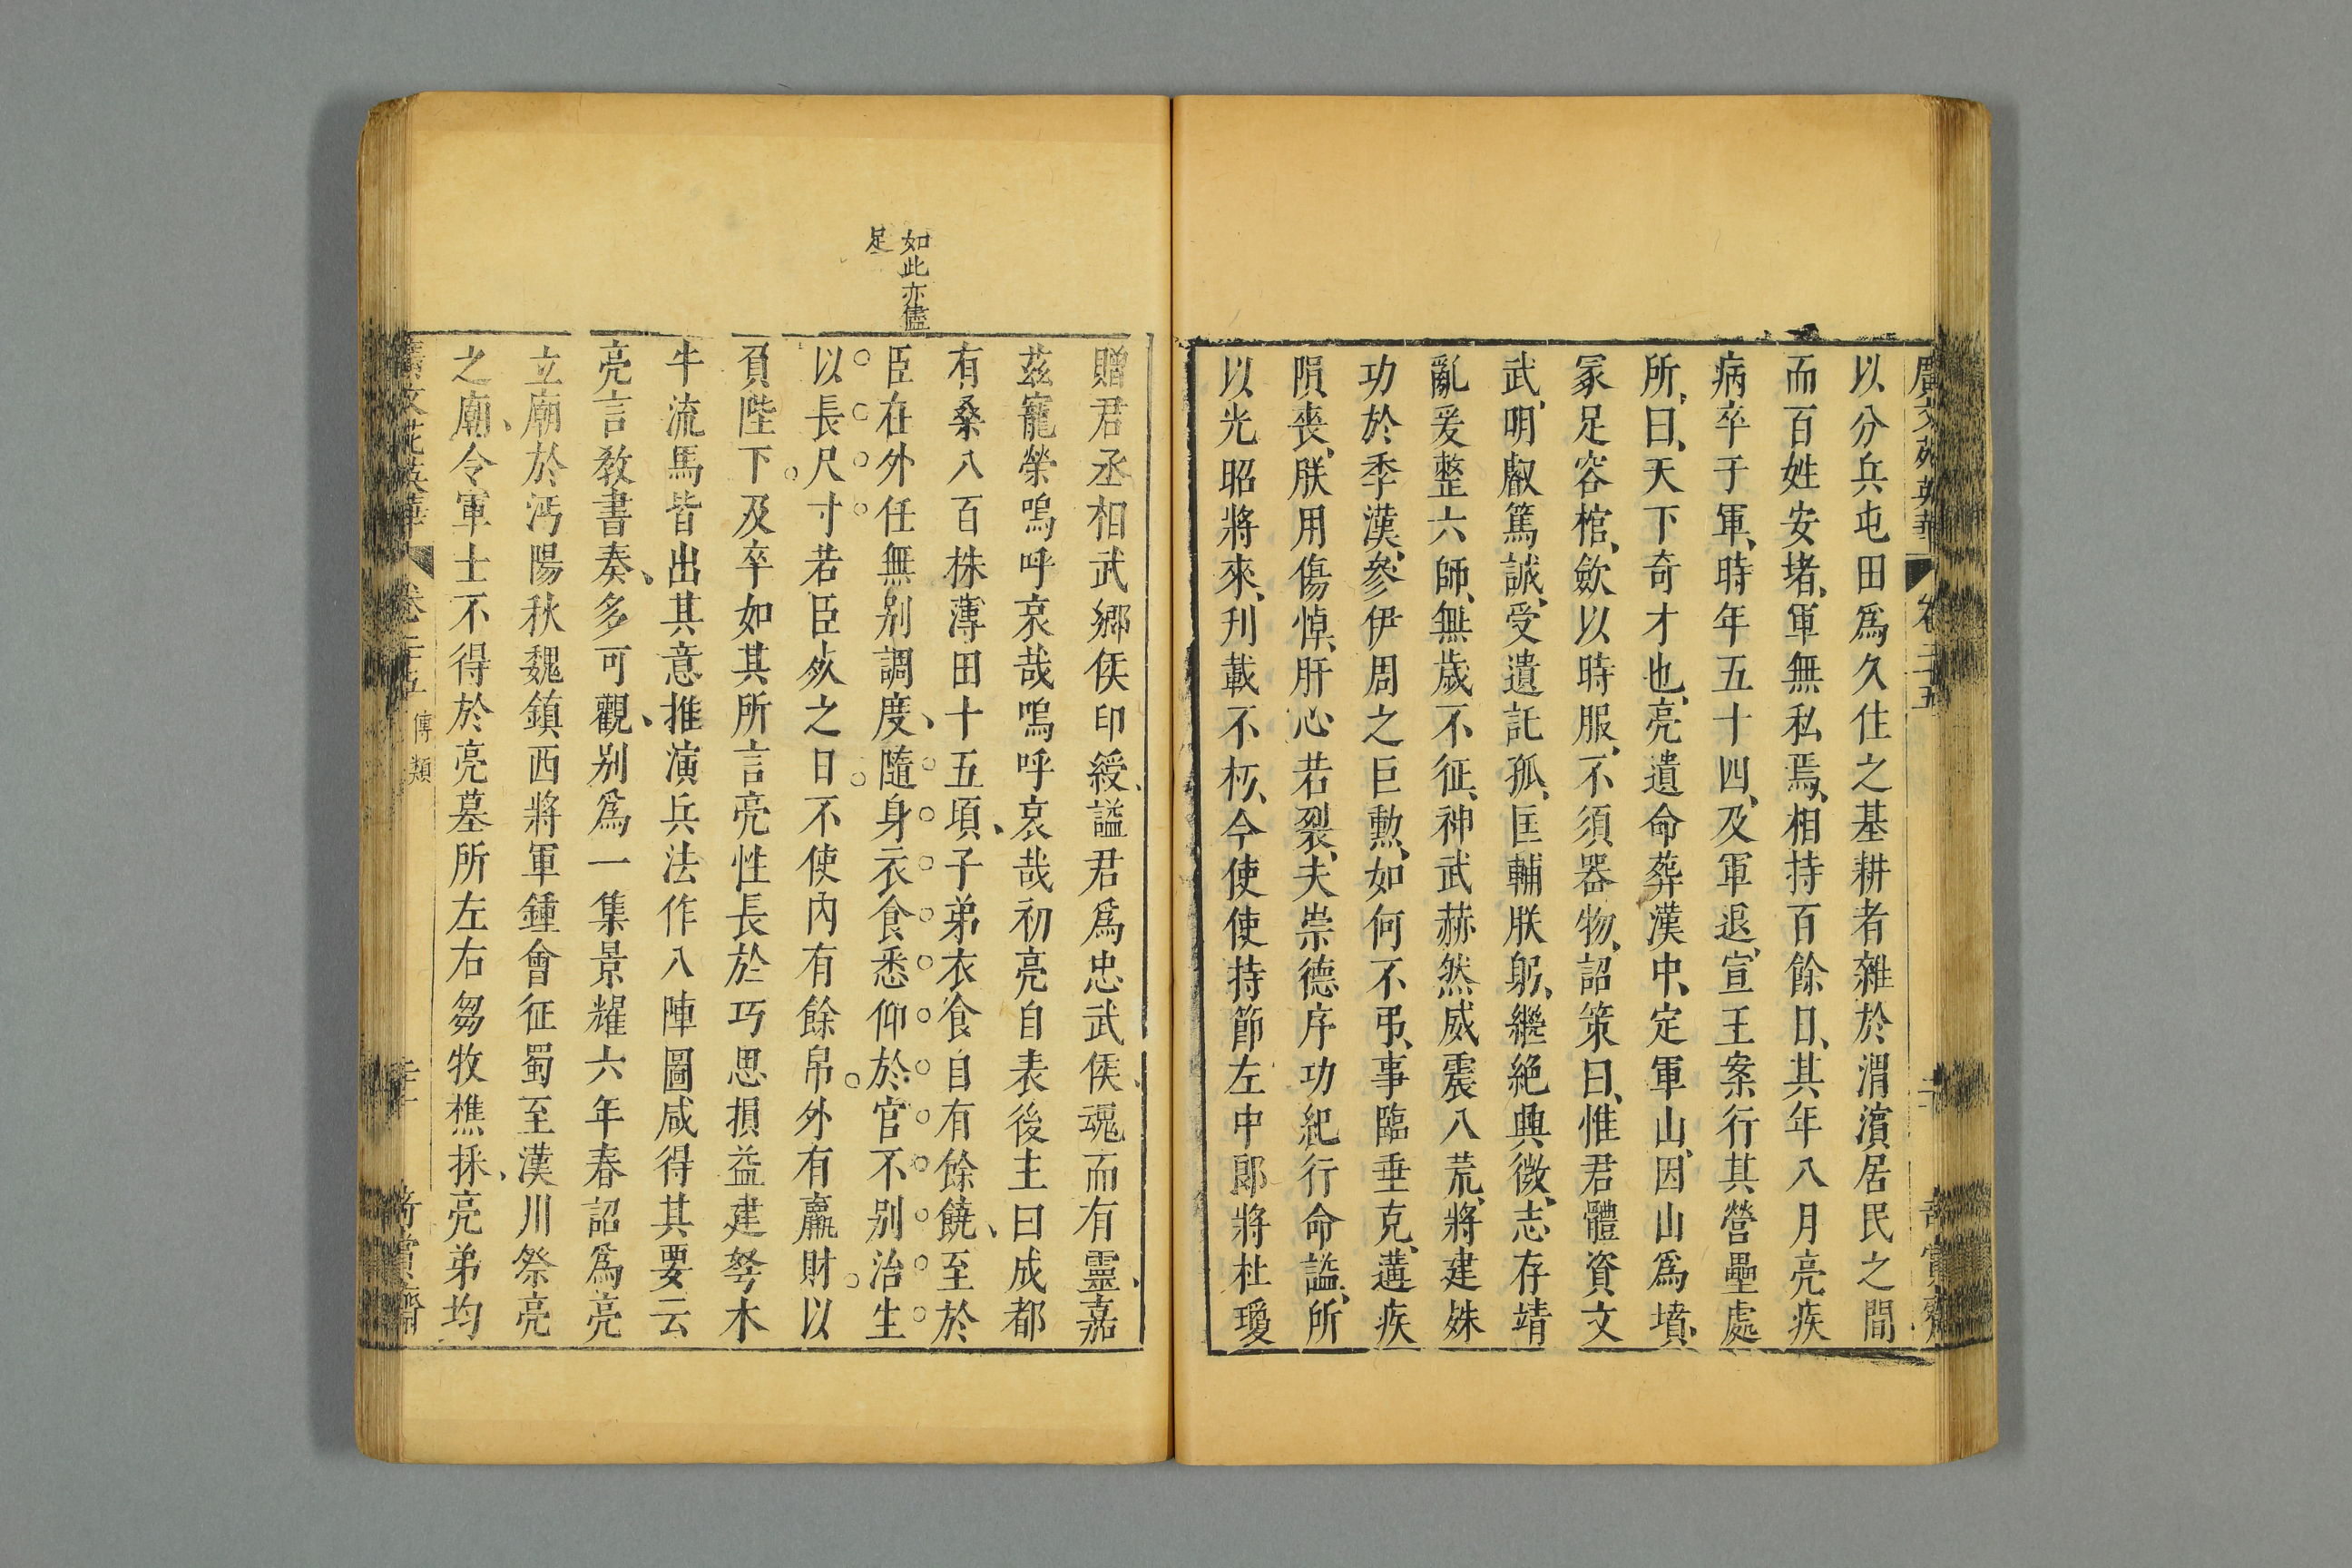 廣文苑英華
卷二十五
以分兵屯田爲久住之基耕者雜於渭濱居民之間
而百姓安堵、軍無私焉、相持百餘日、其年八月亮疾
病卒于軍、時年五十四、及軍退、宣王案行其營壘處
所、曰、天下奇才也、亮遺命葬漢中、定軍山、因山爲墳、
冡足容棺、斂以時服、不須器物、詔策曰、惟君體資文
武、明叡篤誠、受遺託孤、匡輔朕躬、繼絕興微、志存靖
亂爰整六師、無歲不征、神武赫然威震八荒、將建姝
功於季漢、參伊周之巨勲、如何不弔、事臨垂克、遘疾
隕喪、朕用傷悼、肝心若裂、夫崇德序功紀行命謚、所
以光昭將來、刋載不朽、今使使持節左中郎將杜瓊
贈君丞相武鄉侯印綬、謚君爲忠武侯、魂而有靈、嘉
茲寵榮嗚呼哀哉嗚呼哀哉初亮自表後主曰成都
有桑八百株薄田十五頃、子弟衣食自有餘饒、至於
如此亦儘
足
臣在外任無别調度、隨身衣食悉仰於官不别治生
以長尺寸若臣死之日不使內有餘帛外有贏財以
負陛下及卒如其所言亮性長於巧思損益建弩木
牛流馬皆出其意推演兵法作八陣圖咸得其要云
亮言教書奏、多可觀、别爲一集景耀六年春詔爲亮
立廟於沔陽秋魏鎮西將軍鍾會征蜀至漢川祭亮
之廟、令軍士不得於亮墓所左右芻牧樵採、亮弟均
傳類